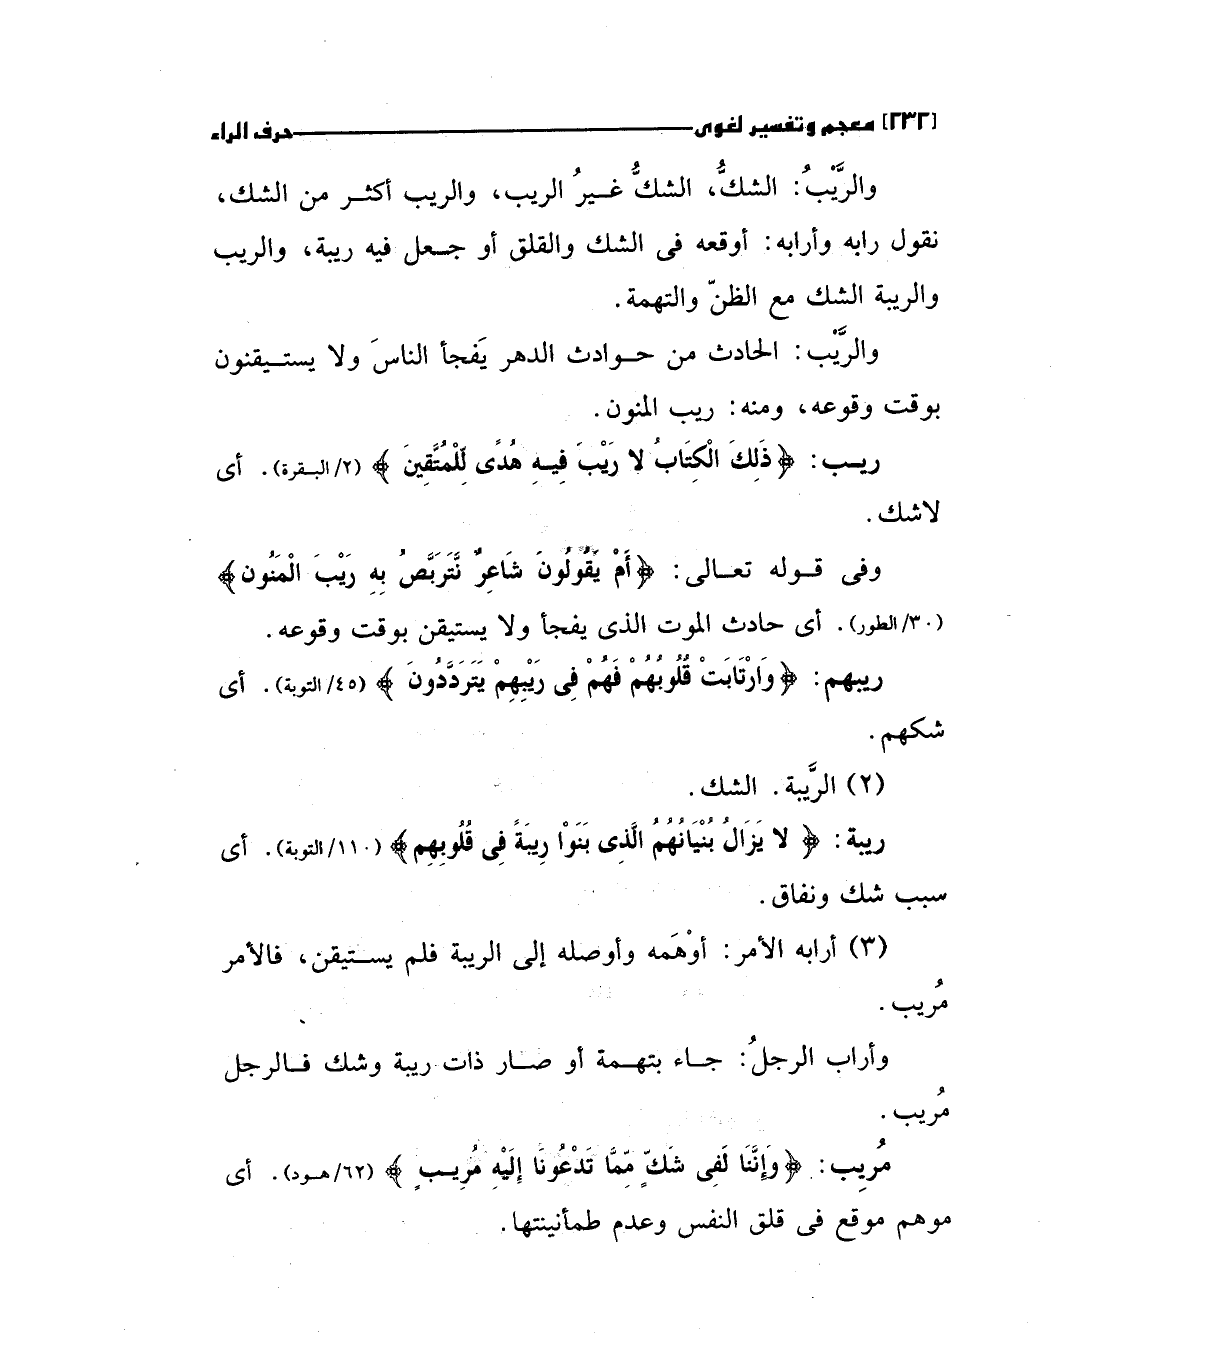 [٢٣٢] معجم وتفسير لغوى حرف الراء
والرَّيْبُ: الشكُّ، الشكُّ غيرُ الريب، والريب أكثر من الشك،
نقول رابه وأرابه: أوقعه فى الشك والقلق أو جعل فيه ريبة، والريب
والريبة الشك مع الظنّ والتهمة.
والرَّيْب: الحادث من حوادث الدهر يَفجأ الناسَ ولا يستيقنون
بوقت وقوعه، ومنه: ريب المنون.
ريب: ﴿ذَلِكَ الْكِتَابُ لا رَيْبَ فِيهِ هُدًى لِّلْمُتَّقِينَ﴾ (٢/البقرة). أى
لاشك.
وفى قوله تعالى: ﴿أَمْ يَقُولُونَ شَاعِرٌ نَّتَرَبَّصُ بِهِ رَيْبَ الْمَنُونِ﴾
(٣٠/الطور). أى حادث الموت الذى يفجأ ولا يستيقن بوقت وقوعه.
ريبهم: ﴿وَارْتَابَتْ قُلُوبُهُمْ فَهُمْ فِى رَيْبِهِمْ يَتَرَدَّدُونَ﴾ (٤٥/التوبة). أى
شكهم.
(٢) الرِّيبة. الشك.
ريبة: ﴿لا يَزَالُ بُنْيَانُهُمُ الَّذِى بَنَوْا رِيبَةً فِى قُلُوبِهِم﴾ (١١٠/التوبة). أى
سبب شك ونفاق.
(٣) أرابه الأمر: أوْهَمه وأوصله إلى الريبة فلم يستيقن، فالأمر
مُريب.
وأراب الرجلُ: جاء بتهمة أو صار ذات ريبة وشك فالرجل
مُريب.
مُرِيب: ﴿وَإِنَّنَا لَفِى شَكٍّ مِّمَّا تَدْعُونَا إِلَيْهِ مُرِيبٍ﴾ (٦٢/هود). أى
موهم موقع فى قلق النفس وعدم طمأنينتها.